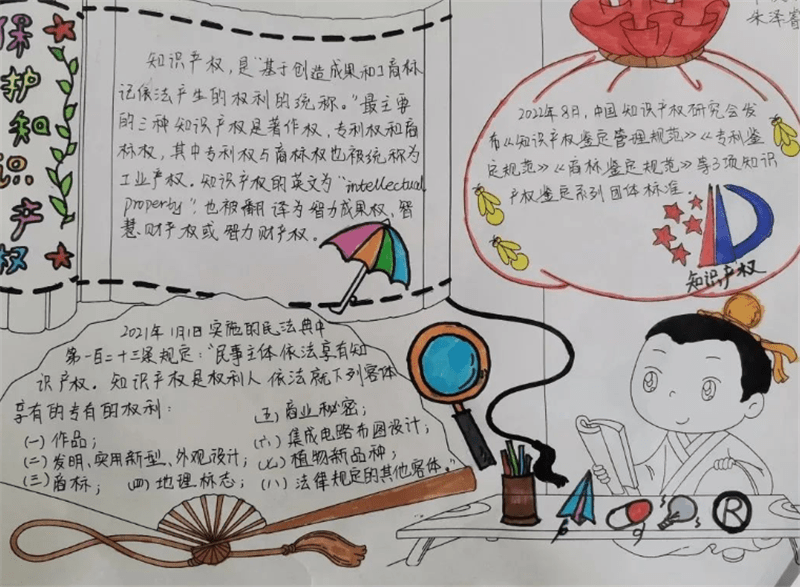 保护知识产权
知识产权，是“基于创造成果和工商标
记依法产生的权利的统称。”最主要
的三种知识产权是著作权，专利权和商
标权，其中专利权与商标权也被统称为
工业产权。知识产权的英文为“intellectual
property”，也被翻译为智力成果权，智
慧财产权或智力财产权。
朱泽睿
2022年8月，中国知识产权研究会发
布《知识产权鉴定管理规范》《专利鉴
定规范》《商标鉴定规范》等3项知识
产权鉴定系列团体标准。
知识产权
2021年1月1日实施的民法典中
第一百二十三条规定：“民事主体依法享有知
识产权。知识产权是权利人依法就下列客体
享有的专有的权利：
(一)作品；
(二)发明、实用新型、外观设计；
(三)商标； (四)地理标志；
(五)商业秘密；
(六)集成电路布图设计；
(七)植物新品种；
(八)法律规定的其他客体。”
R